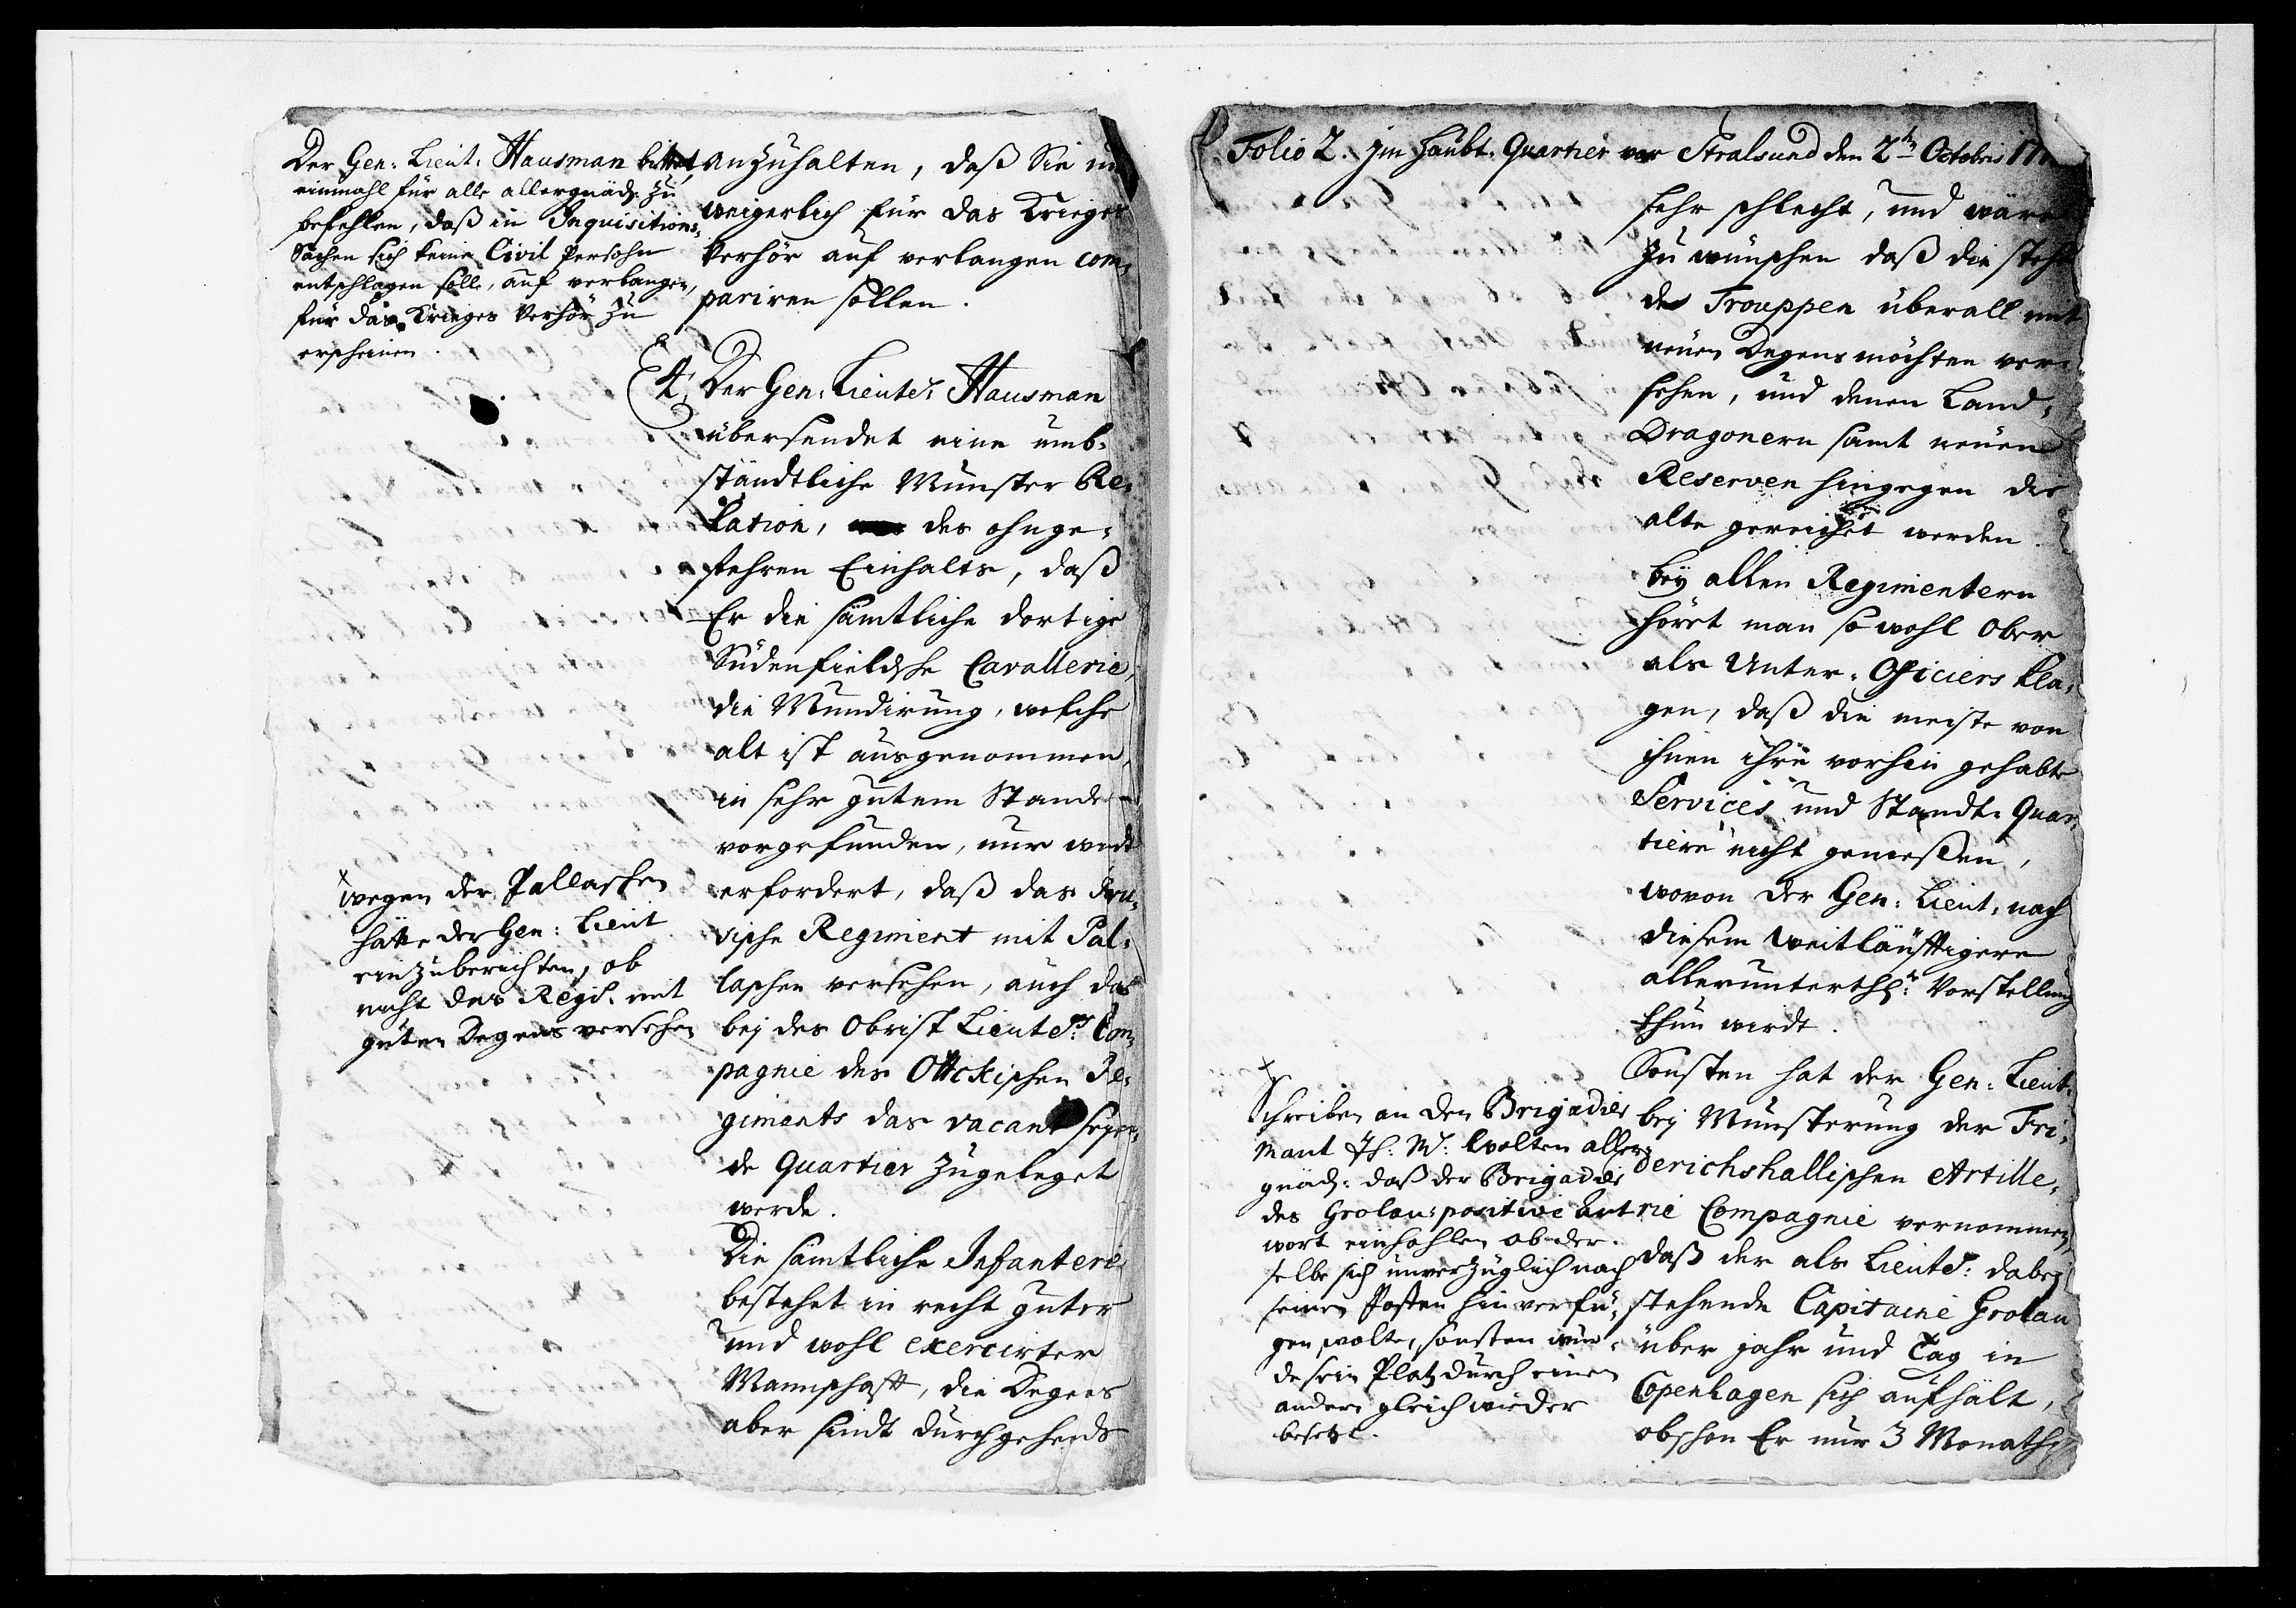 Der Gen: Lieut: Hausman bittet,
einmahl für alle allergnäd: zu
befehlen, daß in Inquisitions-
Sachen sich keine Civil Persohn
entschlagen solle, auf verlangen,
für das Krieges Verhör zu
erscheinen.
x
wegen der Pallaschen
hätte der Gen: Lieut
einzuberichten, ob
nicht das Regt. mit
guten Degens versehen
anzuhalten, daß Sie un
weigerlich für das Krieges
Verhör auf verlangen com-
pariren sollen.
4, Der Gen: Lieute: Hausman
übersendet eine umb-
ständtliche Munster Re-
lation, des ohnge-
fehren Einhalts, daß
Er die sämtliche dortige
Südenfieldsche Cavallerie,
die Mundirung, welche
alt ist ausgenommen,
in sehr gutem Stande
vorgefunden, nur wirdt
erfordert, daß das
vische Regiment mit Pal-
laschen versehen, auch das
bey des Obrist Lieute: Com-
pagnie des Ottckischen Re-
giments das vacant seyen-
de Quartier zugeleget
werde.
Die sämtliche Infanterie
bestehet in recht guter
und wohl exercirter
Mannschafft, die Degens
aber sindt durchgehends
Folio 2. Im Haubt. Quartier vor Stralsund den 2ten Octobris 17
sehr schlecht, und wäre
zu wünschen daß die steh
de Trouppen überall mit
neuen Degens möchten ver-
sehen, und denen Land-
Dragonern samt neuen
Reserven hingegen die
alte gereichet werden.
bey allen Regimentern
höret man so wohl Ober
als Unter-Officiers kla-
gen, daß die meiste von
ihnen ihre vorhin gehabte
Services und Standt-Quar-
tiere nicht genießen,
wovon der Gen: Lieut: nach
diesem weitläufftigere
allerunterth: Vorstellung
thun wirdt.
Sonsten hat der Gen: Lieut:
bey Munsterung der Fri-
derichshallischen Artille-
rie Compagnie vernommen,
daß der als Lieute: dabey
stehende Capitaine Grolau
über jahr und Tag in
Copenhagen sich aufhält,
obschon Er nur 3 Monaths
x
Schreiben an den Brigadier
Mant Ih: M: wolten aller-
gnäd: daß der Brigadier
des Grolau: positive Ant
wort einhohlen ob der-
selbe sich unverzüglich nach
seinen Posten hin verfü-
gen, wolte, sonsten wür-
de sein Platz durch einen
andern gleich wieder
besetzt.